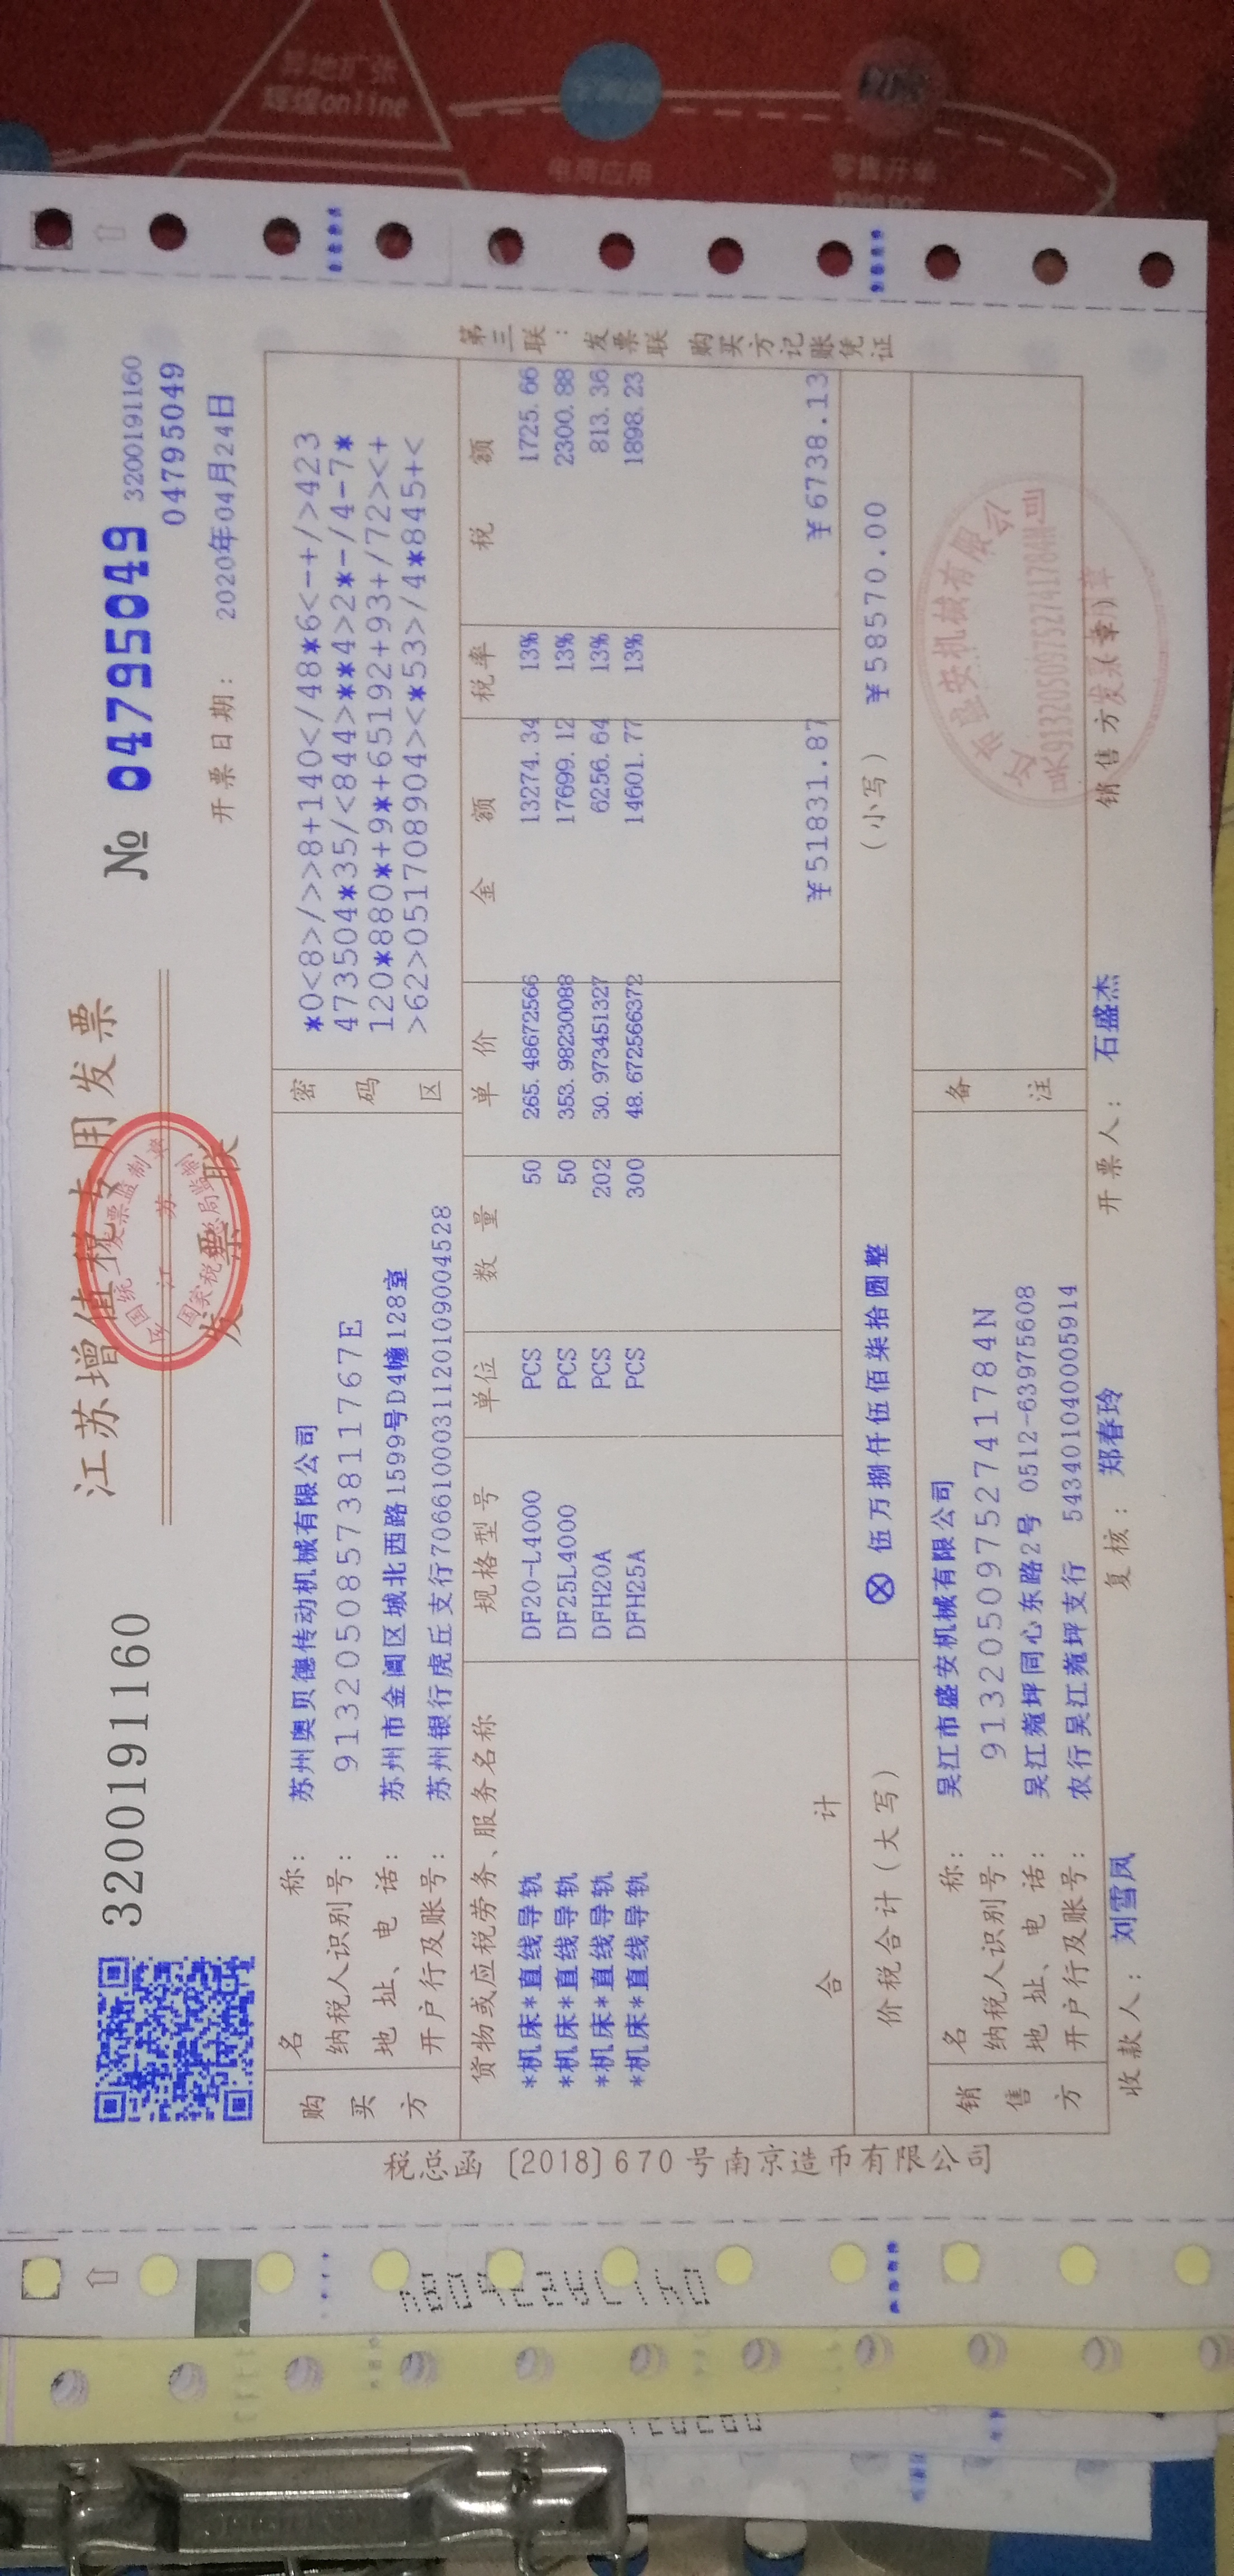 3200191160
江苏增值税专用发票
发票联
№ 04795049
3200191160
04795049
开票日期: 2020年04月24日
税总函〔2018〕670号南京造币有限公司
第三联:发票联 购买方记账凭证
购买方
名称: 苏州奥贝德传动机械有限公司
纳税人识别号: 91320508573811767E
地址、电话: 苏州市金阊区城北西路1599号D4幢128室
开户行及账号: 苏州银行虎丘支行7066100031120109004528
密码区
*0<8>/>>8+140</48*6<-+/>423
473504*35/<844>**4>2*-/4-7*
120*880*+9*+65192+93+/72><+
>62>051708904><*53>/4*845+<
货物或应税劳务、服务名称 规格型号 单位 数量 单价 金额 税率 税额
*机床*直线导轨 DF20-L4000 PCS 50 265.48672566 13274.34 13% 1725.66
*机床*直线导轨 DF25L4000 PCS 50 353.98230088 17699.12 13% 2300.88
*机床*直线导轨 DFH20A PCS 202 30.973451327 6256.64 13% 813.36
*机床*直线导轨 DFH25A PCS 300 48.672566372 14601.77 13% 1898.23
合计 ¥51831.87 ¥6738.13
价税合计(大写) ⊗伍万捌仟伍佰柒拾圆整 (小写) ¥58570.00
销售方
名称: 吴江市盛安机械有限公司
纳税人识别号: 91320509752741784N
地址、电话: 吴江菀坪同心东路2号 0512-63975608
开户行及账号: 农行吴江菀坪支行 543401040005914
备注
收款人: 刘雪凤 复核: 郑春玲 开票人: 石盛杰 销售方:(章)
异地扩张
辉煌online
电商应用
零售开单